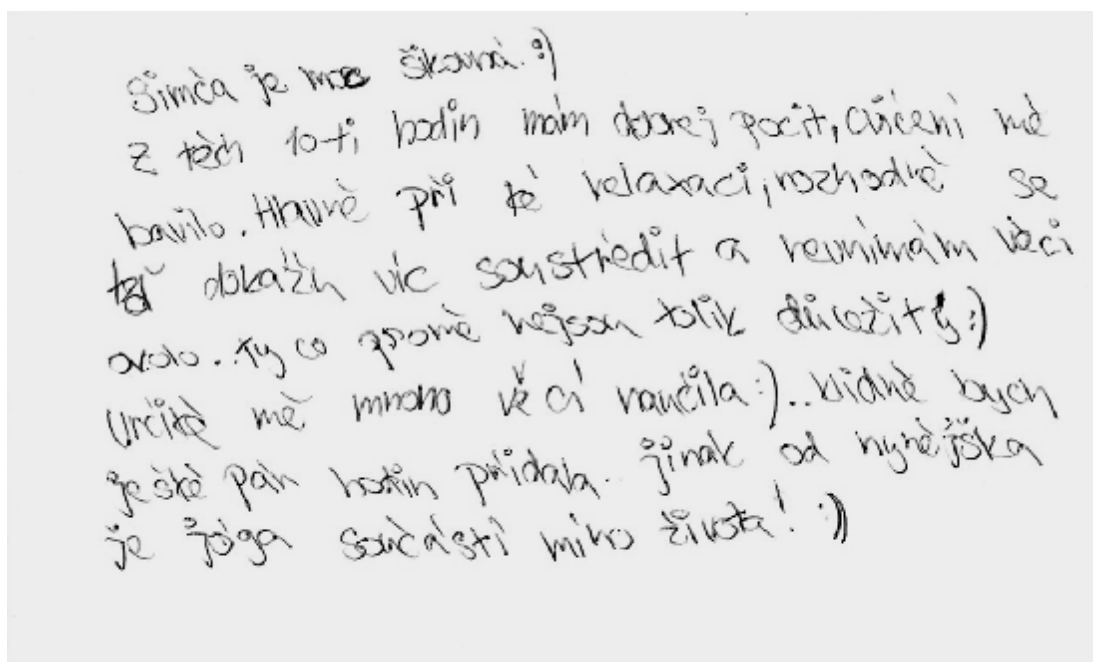 Simča je moc šikovná. :)
Z těch 10-ti hodin mám dobrej pocit, cvičení mě
bavilo. Hlavně při té relaxaci, rozhodně se
teď dokážu víc soustředit a nevnímám věci
okolo.. Ty co zrovna nejsou tolik důležitý :)
Určitě mě mnoho věcí naučila :).. klidně bych
ještě pár hodin přidala.. jinak od nynějška
je jóga součástí mího života! :))